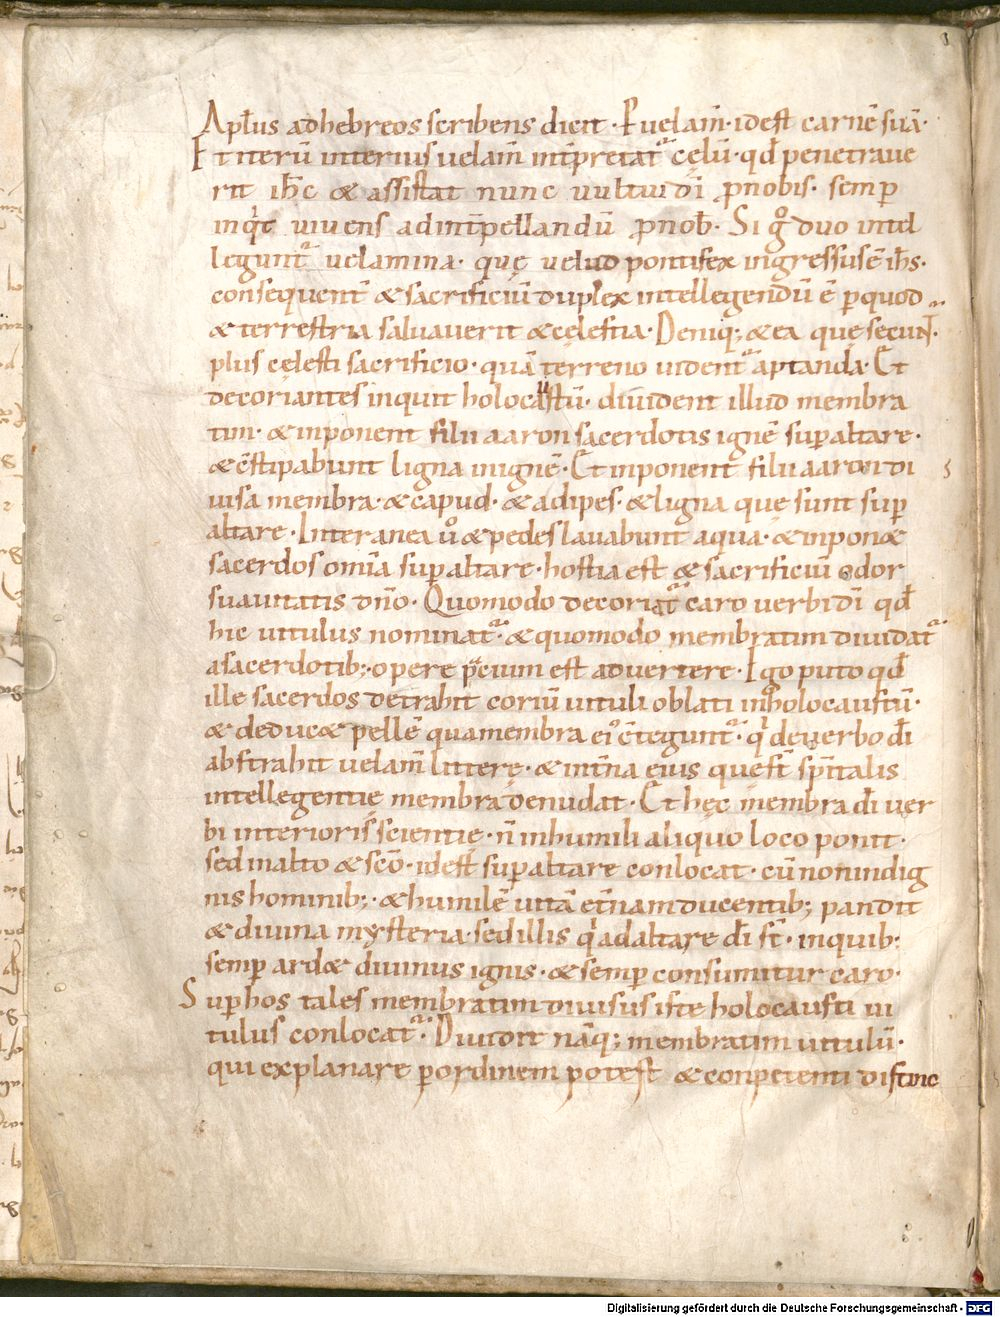 Apl̄us adhebreos scribens dicit · P uelam̄ · idest carnē suā ·
Et iterū interius uelam̄ int̄pretat᷒ cęlū · qđ penetraue
rit ih̄c & assistat nunc uultui dī ꝓnobis · semp
inqͥt uiuens adint̄pellandū ꝓnob̄ · Si gͦ duo intel
legunt᷒ uelamina · quę velud pontifex ingressus ē ih̄s ·
consequent̄ & sacrificiū duplex intellegendū ē ꝑquod
& terrestria saluauerit & cęlestia · Deniq; & ea quę secunt᷒ ·
plus cęlesti sacrificio · quā terreno uident᷒ aptanda · Et
decoriantes inquit holocaustū · diuident illud membra
tim · & inponent filii aaron sacerdotis ignē sup altare ·
& c̄stipabunt ligna in ignē · Et inponent filii aaron di
uisa membra · & capud · & adipes · & ligna quę sunt sup
altare · Interanea ū̊ & pedes lauabunt aqua · & inpon&
sacerdos omīa sup altare · hostia est & sacrificiū odor
suauitatis dn̄o · Quomodo decoriat᷒ caro uerbi dī qđ
hic uitulus nominat᷒ · & quomodo membratim diuidat᷒
a sacerdotib; · opere p̄cium est aduertere · Ego puto qđ
ille sacerdos detrahit coriū uituli oblati in holocaustū ·
& deduc& pellē qua membra eiꝰ c̄tegunt᷒ · qͥ de uerbo đi
abstrahit uelam̄ litterę · & int̄na eius quę st̄ spīritalis
intellegentię membra denudat · Et hęc membra đi uer
bi interioris scientię · n̄ in humili aliquo loco ponit ·
sed in alto & sc̄o · idest sup altare conlocat · cū non indig
nis hominib; · & humilē uitā et̄nam ducentib; pandit
& diuina mysteria · sed illis qͥ ad altare đi st̄ · in quib;
semp ard& diuinus ignis · & semp consumitur caro ·
Sup hos tales membratim diuisus iste holocausti ui
tulus conlocat᷒ · Diuidit nāq; membratim uitulū ·
qui explanare ꝑ ordinem potest & conpetenti distinc
Digitalisierung gefördert durch die Deutsche Forschungsgemeinschaft · DFG